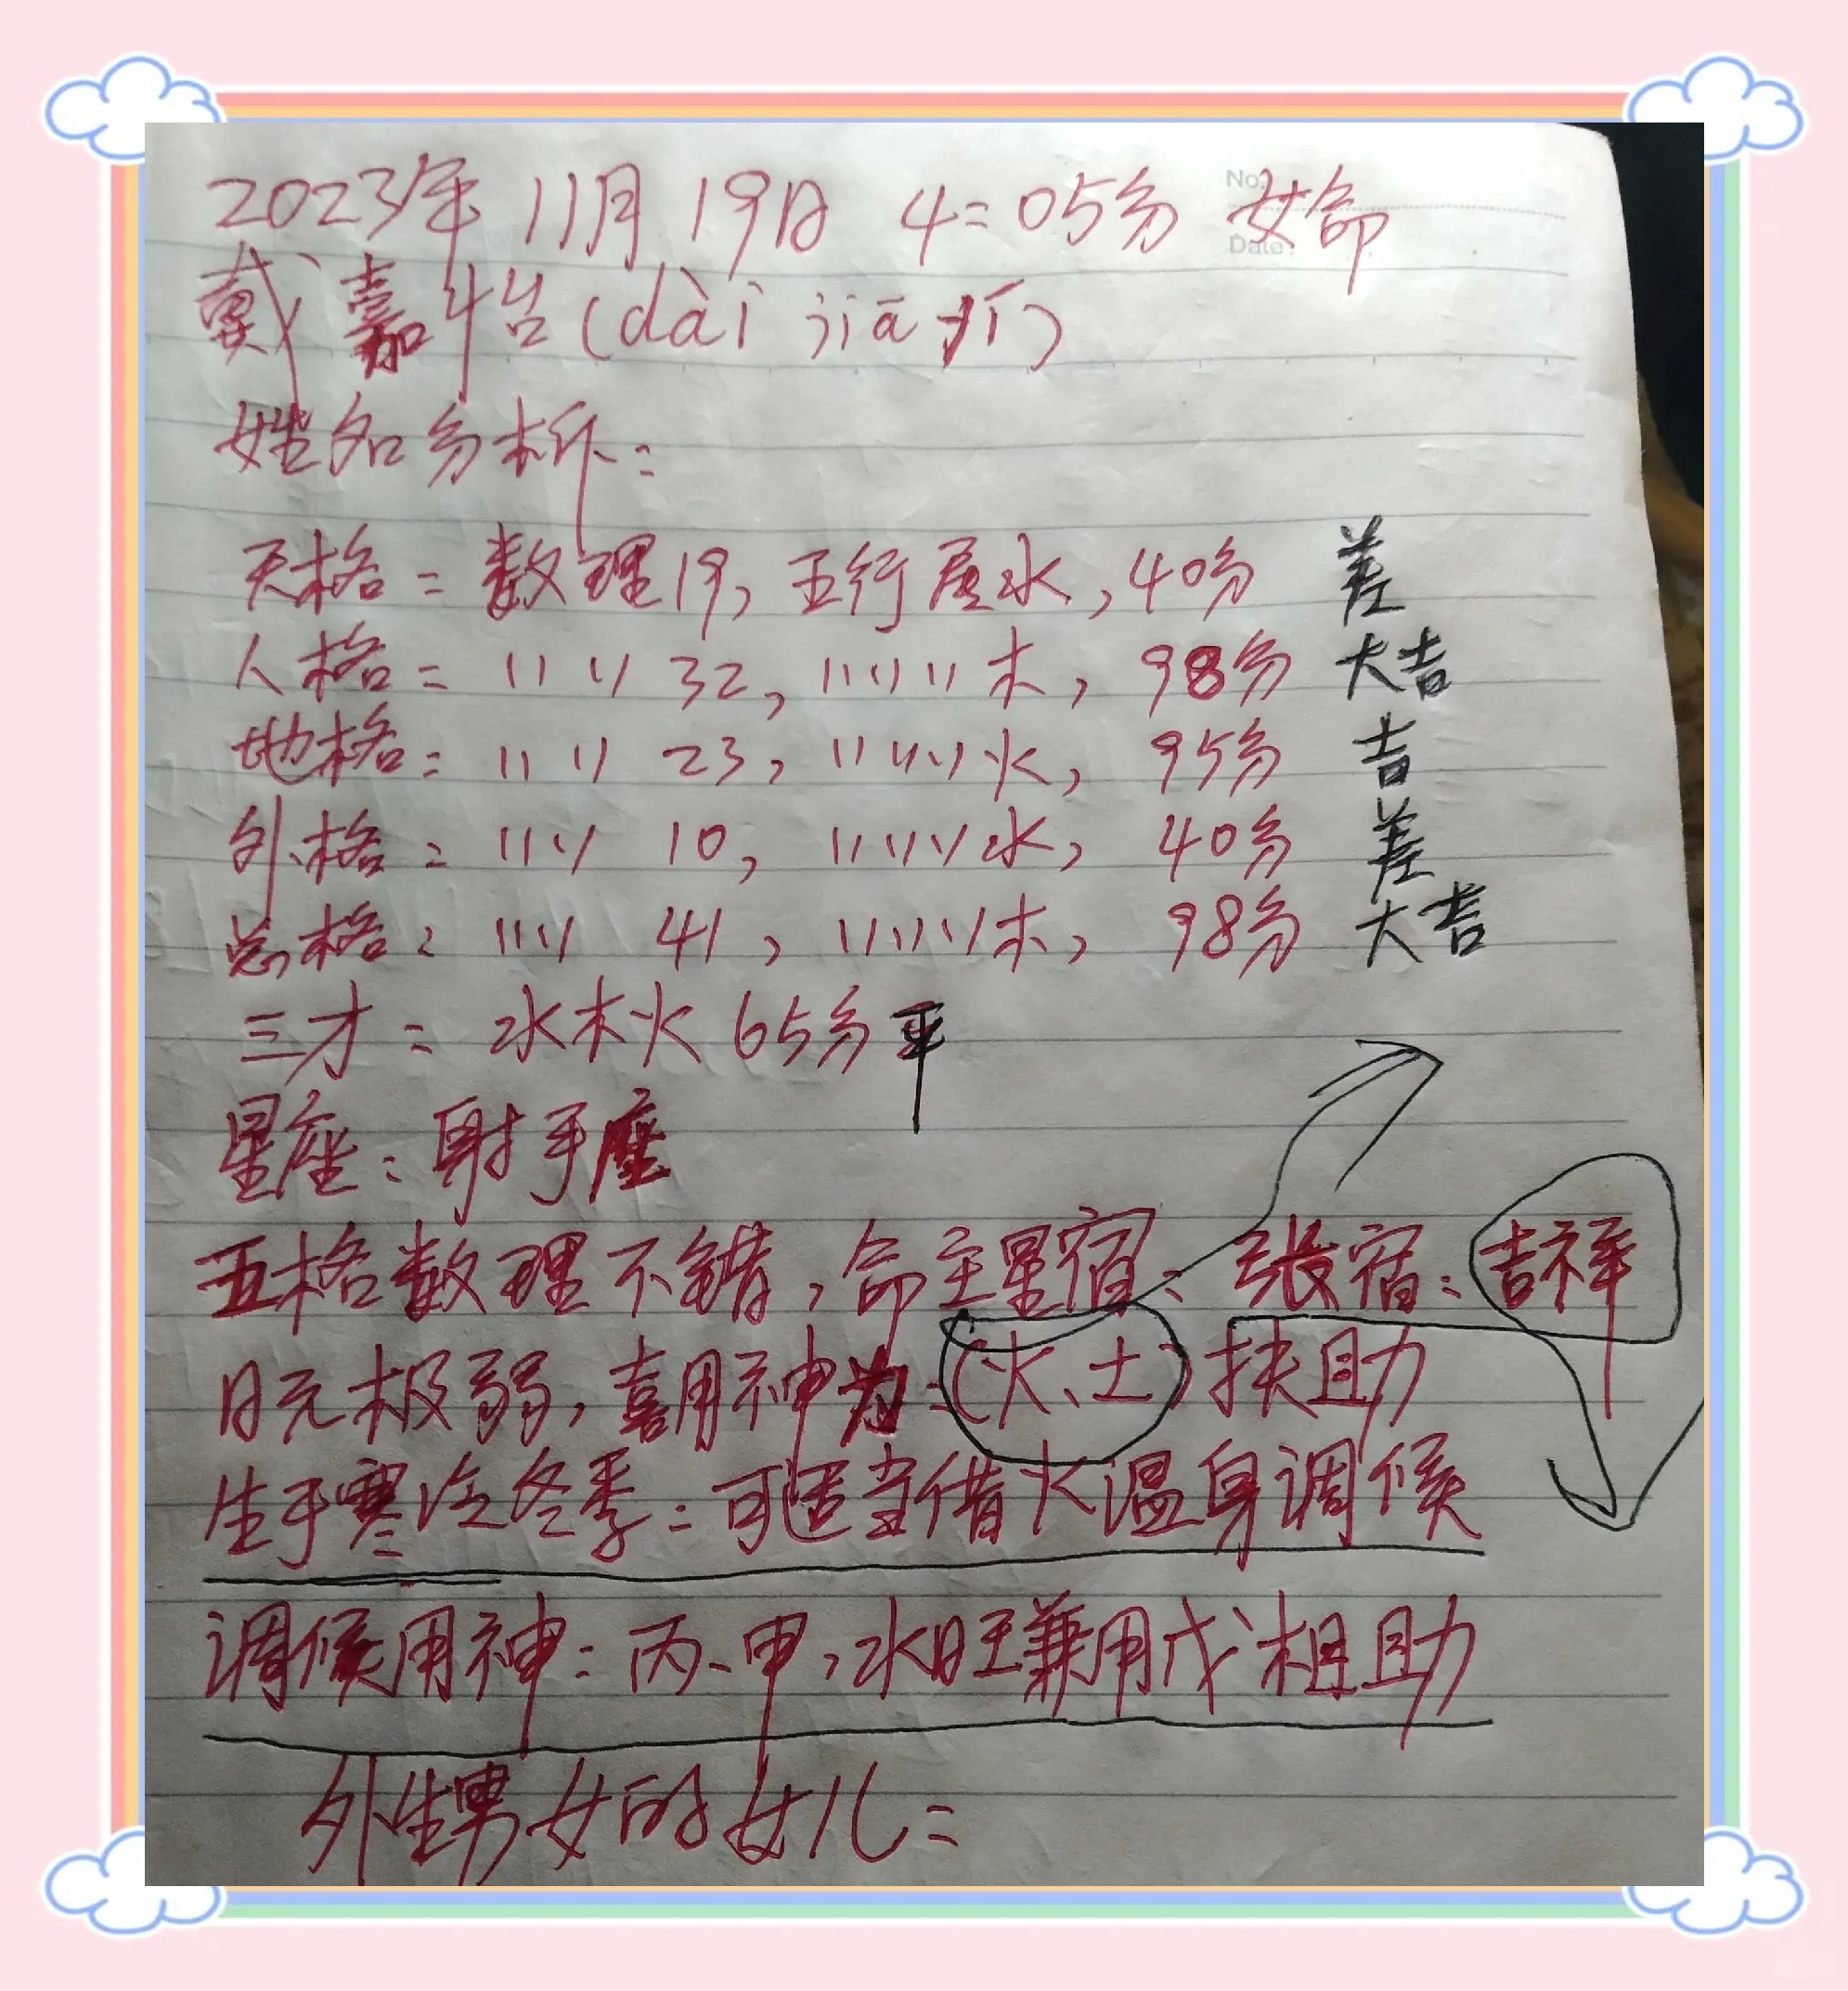 No.
2023年 11月 19日 4:05分 女命
Date
戴嘉怡(dài jiā yí)
姓名分析:
天格:数理19,五行属水,40分 差
人格:〃 〃 32,〃〃〃木,98分 大吉
地格:〃 〃 23,〃〃〃火,95分 吉
外格:〃 〃 10,〃〃〃水,40分 差
总格:〃 〃 41,〃〃〃木,98分 大吉
三才:水木火 65分 平
星座:射手座
五格数理不错,命主星宿:张宿:吉祥
日元极弱,喜用神为:(火、土)扶助
生于寒冷冬季:可适当借火温身调候
调候用神:丙、甲,水旺兼用戊相助
外生男女的女儿: